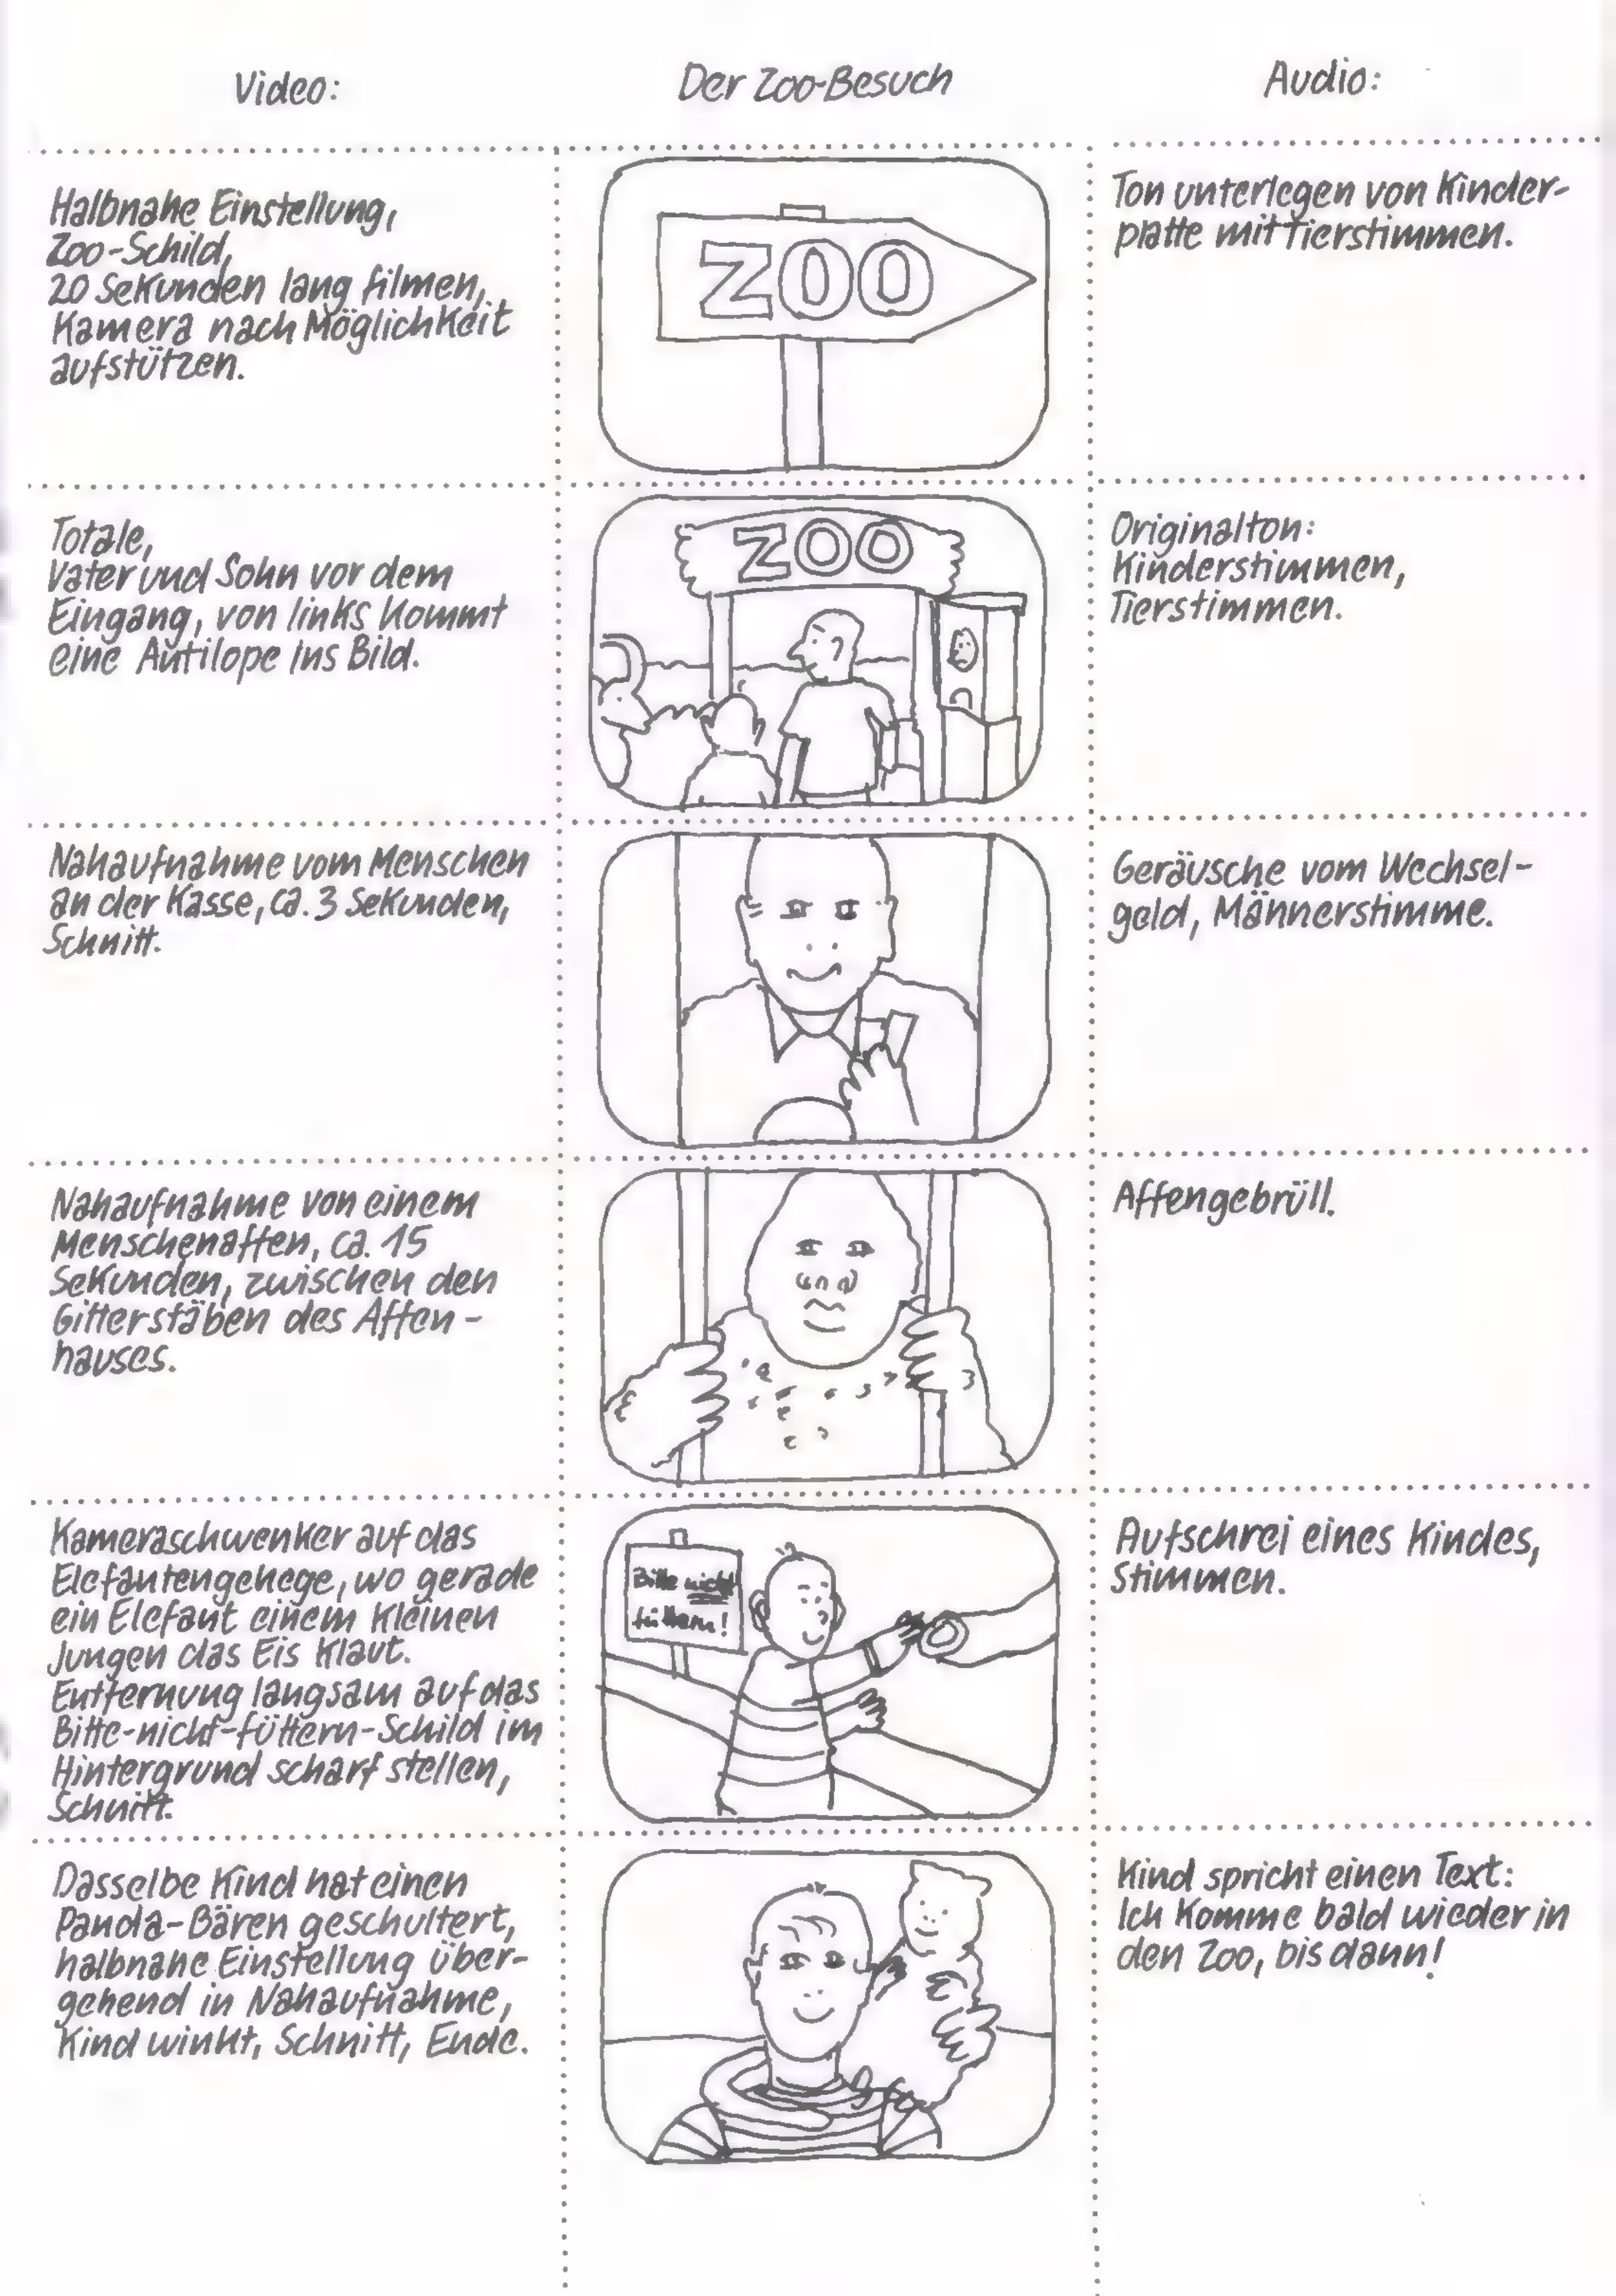 Video:
Der Zoo-Besuch
Audio:
Halbnahe Einstellung,
Zoo-Schild,
20 Sekunden lang filmen,
Kamera nach Möglichkeit
aufstützen.
ZOO
Ton unterlegen von Kinder-
platte mit Tierstimmen.
Totale,
Vater und Sohn vor dem
Eingang, von links kommt
eine Antilope ins Bild.
ZOO
Originalton:
Kinderstimmen,
Tierstimmen.
Nahaufnahme vom Menschen
an der Kasse, ca. 3 Sekunden,
Schnitt.
Geräusche vom Wechsel-
geld, Männerstimme.
Nahaufnahme von einem
Menschenaffen, ca. 15
Sekunden, zwischen den
Gitterstäben des Affen-
hauses.
Affengebrüll.
Kameraschwenker auf das
Elefantengehege, wo gerade
ein Elefant einem kleinen
Jungen das Eis klaut.
Entfernung langsam auf das
Bitte-nicht-füttern-Schild im
Hintergrund scharf stellen,
Schnitt.
Bitte nicht
füttern!
Aufschrei eines Kindes,
Stimmen.
Dasselbe Kind hat einen
Panda-Bären geschultert,
halbnahe Einstellung über-
gehend in Nahaufnahme,
Kind winkt, Schnitt, Ende.
Kind spricht einen Text:
Ich komme bald wieder in
den Zoo, bis dann!